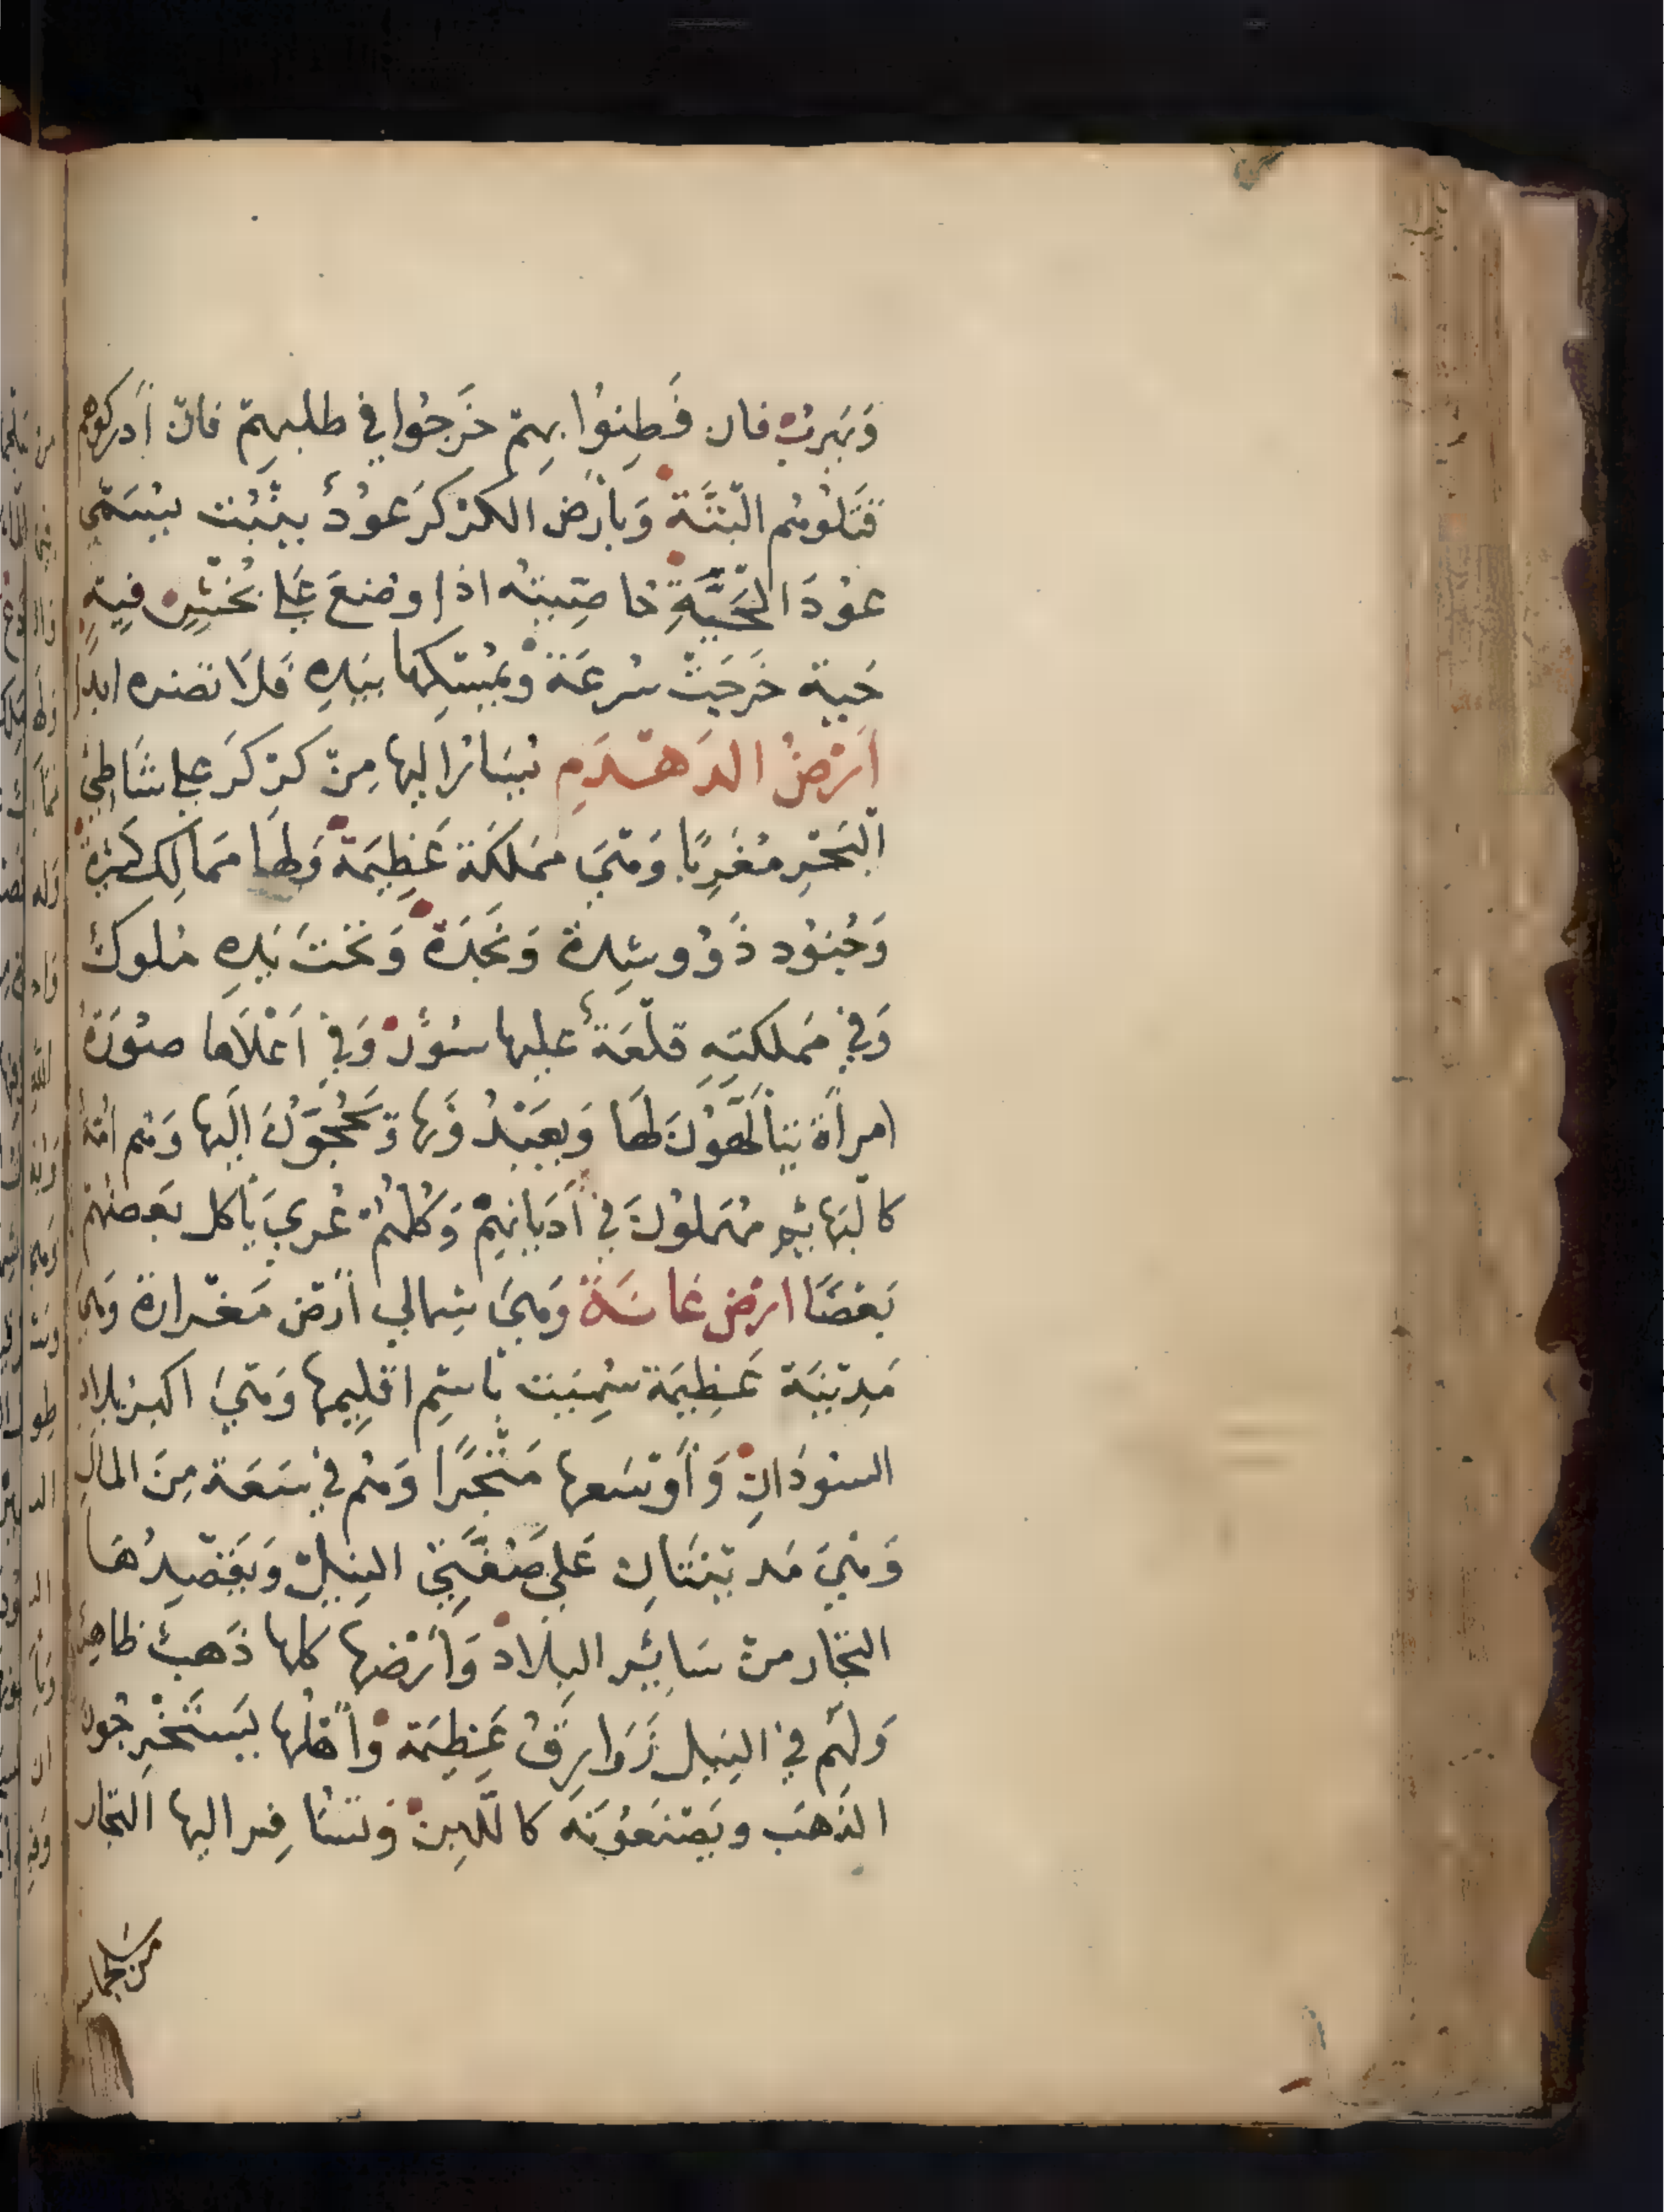 وَيَهربُ فان فَطِنوُا بهِم خرَجوُا في طلبهِم فان أدركوهم
قتَلوُهُم البتَّةَ وَبأرَض الكركرَ عوُدٌ ينبُت يُسَمَّى
عوُدَ الحَيَّةِ خاصّيتهُ اذا وضعَ عَلى جُحْرٍ فيهِ
حَية خَرجَتْ سُرعَة وَيمُسِكها بيَدِهِ فَلاَ تضره ابدًا
اَرْضُ الدَهدَمِ يُسَارُ اليها مِن كركرَ على شَاطئِ
البَحْرِ مغَرِبًا وَهيَ مَملكَة عَظِيمَة وَلهَا مَمالِك كثيرَة
وَجُنوُد ذَوُو شِدة وَنَجدَة وَتحتَ يَدِهِ مُلوك
وَفي مَملكتِهِ قلعَة عليها سُورٌ وَفي اَعْلاَها صوُرَةُ
امرأة يتألّهوُنَ لهَا وَيعبُدُونَها وَيحُجوّنَ اليها وَهُم أمّة
كالبَهائِم مُهمَلوُنَ في أديانِهِم وَكلهُم عُري يَأكل بَعضهُم
بَعضًا ارْض غانَة وَهيَ شِمالي أرض مَغزارة وَهيَ
مَدِينَة عَظِيمَة سُمِيَت بِاسم اقلِيمها وَهيَ اكبر بلاد
السوُدَانِ وَأوسَعها مَتْجَرًا وَهُم في سَعَة مِنَ المالِ
وَهيَ مَدينَتَانِ عَلى ضَفّتي النيلِ وَيَقصِدُهَا
التجّار من سَائِر البِلاد وَأرْضها كلها ذَهبٌ ظاهِرٌ
وَلهُم في النيل زَوَارِقُ عَظِيمَة وَأهلها يَستَخْرِجُونَ
الذَهَب وَيَصنَعوُنَهُ كاللّبِن وَيُسَافِر اليها التجّار
من سلجماسة